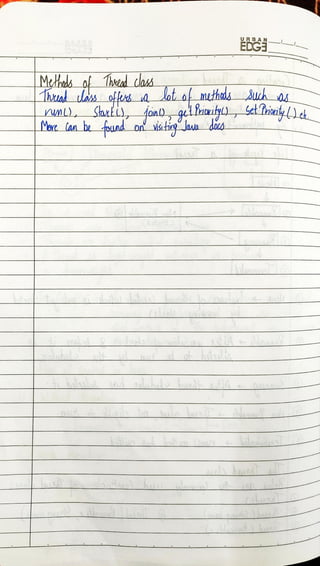 URBAN
EDGE
Methods of Thread class
Thread class offers a lot of methods such as
run(), Start(), join(), getPriority(), SetPriority() etc.
More can be found on visiting Java docs